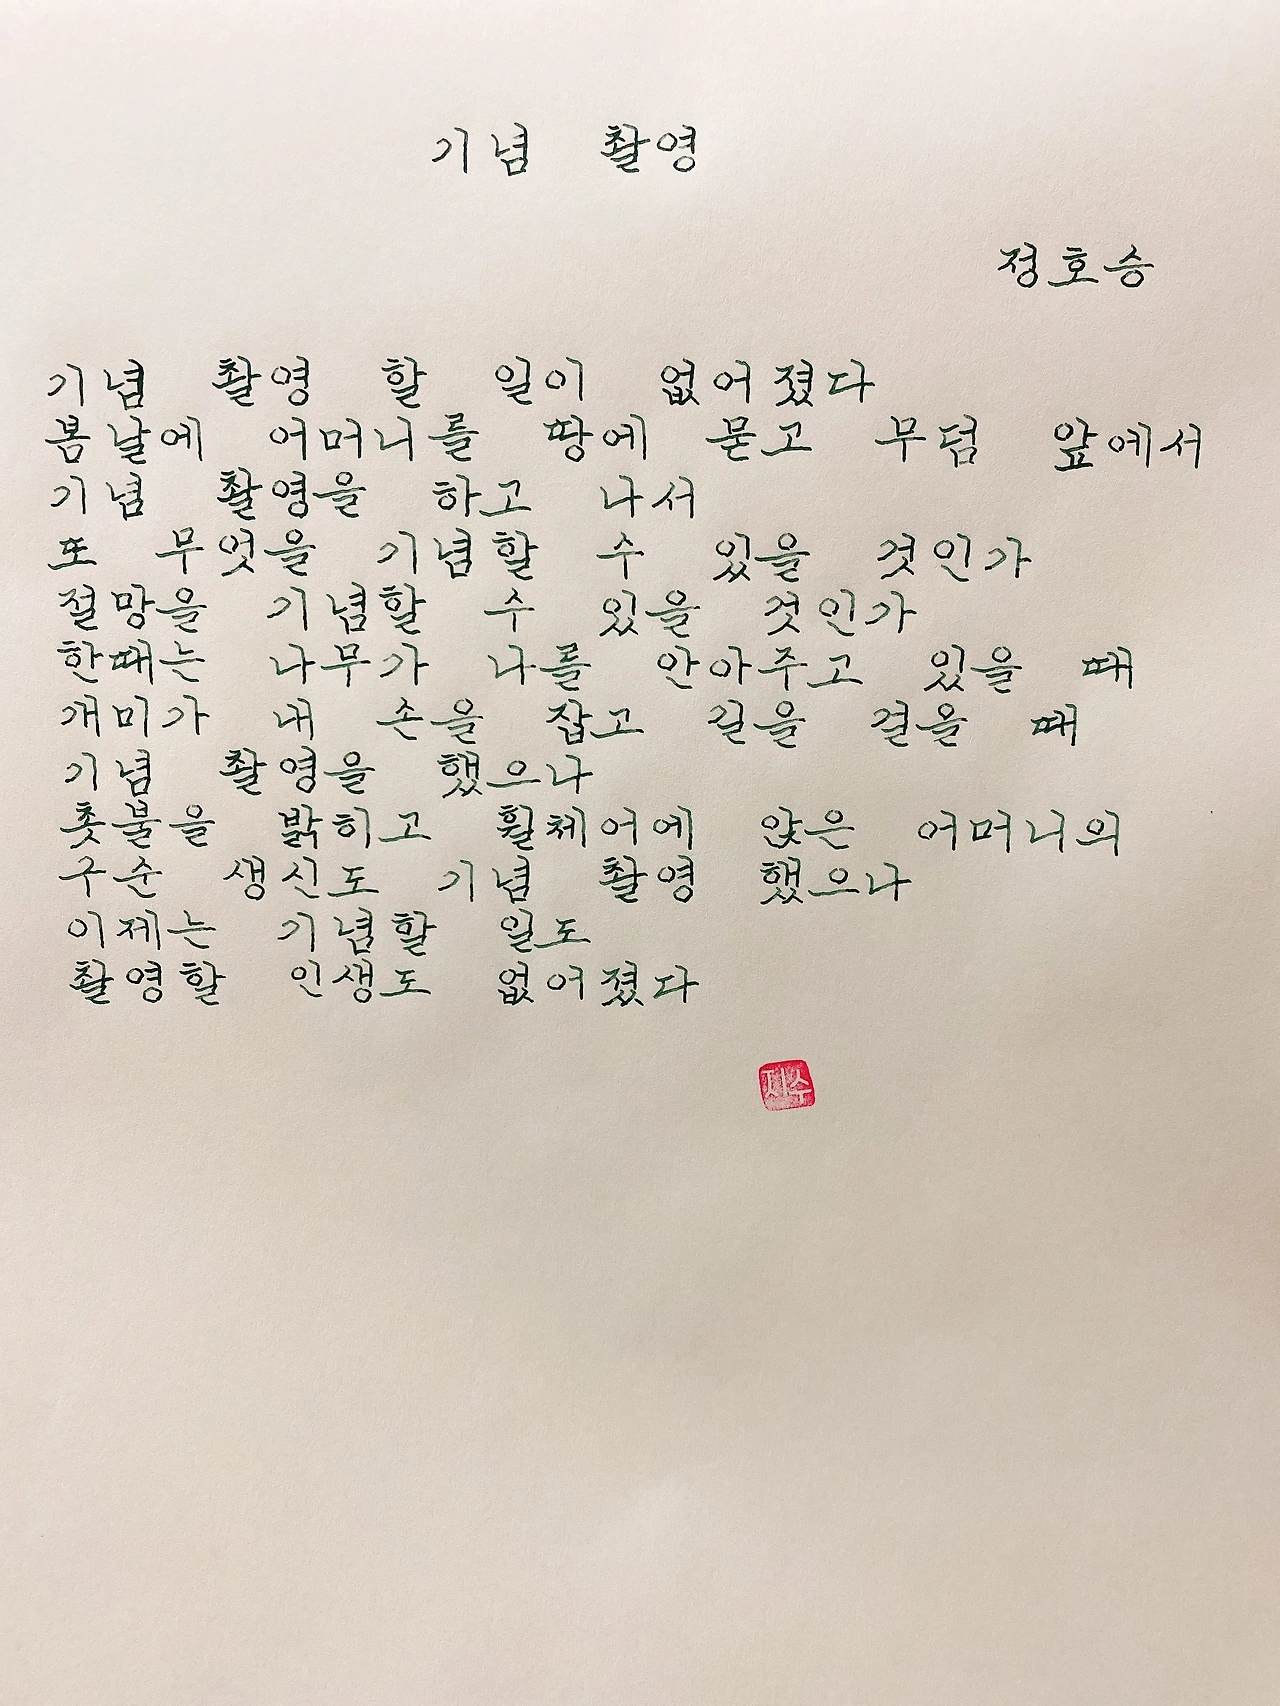 기념 촬영
정호승
기념 촬영 할 일이 없어졌다
봄날에 어머니를 땅에 묻고 무덤 앞에서
기념 촬영을 하고 나서
또 무엇을 기념할 수 있을 것인가
절망을 기념할 수 있을 것인가
한때는 나무가 나를 안아주고 있을 때
개미가 내 손을 잡고 길을 걸을 때
기념 촬영을 했으나
촛불을 밝히고 휠체어에 앉은 어머니의
구순 생신도 기념 촬영 했으나
이제는 기념할 일도
촬영할 인생도 없어졌다